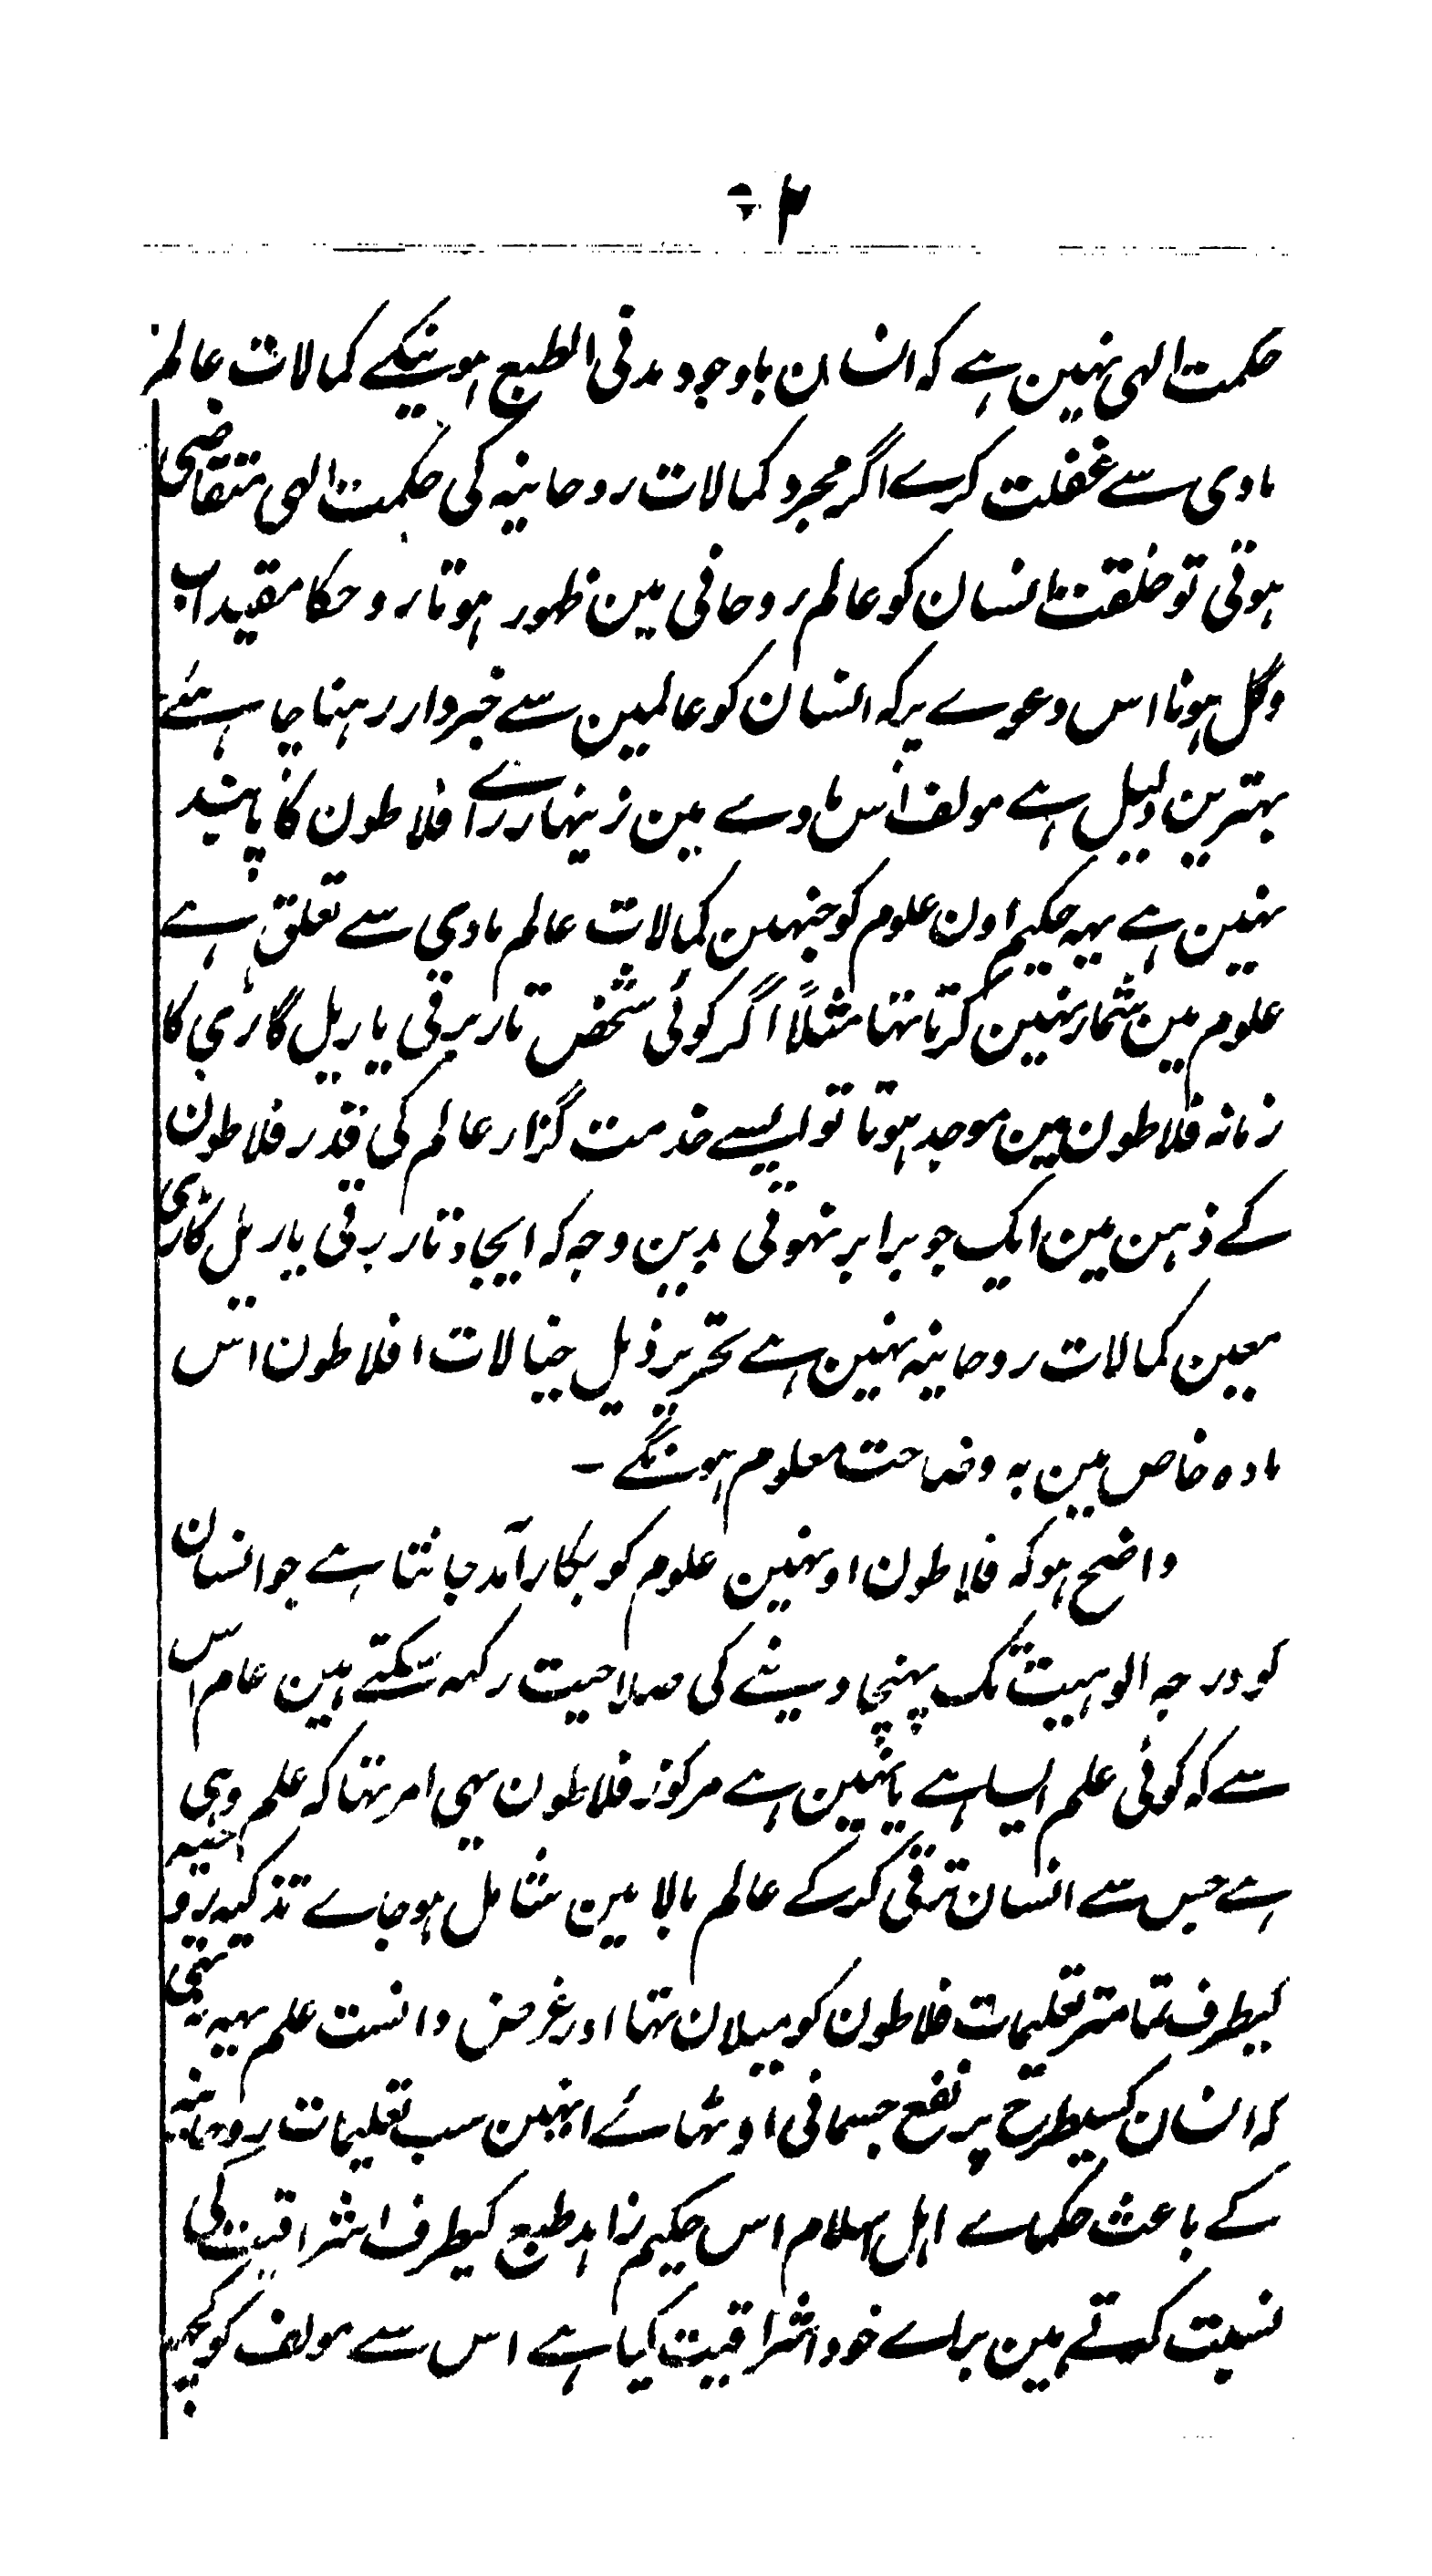 ۴
حکمت الہی نہین ہے کہ انسان باوجود مدنی الطبع ہونیکے کمالات عالم
مادی سے غفلت کرے اگر مجرد کمالات روحانیہ کی حکمت الہی متقاضی
ہوتی تو خلقت انسان کو عالم روحانی مین ظہور ہوتا روحکا مقید اب
وگل ہونا اس دعوے پر کہ انسان کو عالمین سے خبردار رہنا چاہئے
بہترین دلیل ہے مولف اس مادے مین زینہار رائے افلاطون کا پابند
نہین ہے یہہ حکیم اون علوم کو جنہین کمالات عالم مادی سے تعلق ہے
علوم مین شمار نہین کرتا تہا مثلاً اگر کوئی شخص تار برقی یا ریل گاڑی کا
زمانہ فلاطون مین موجد ہوتا تو ایسے خدمت گزار عالم کی قدر فلاطون
کے ذہن مین ایک جو برابر نہوتی بدین وجہ کہ ایجاد تار برقی یا ریل گاڑی
معین کمالات روحانیہ نہین ہے تحریر ذیل خیالات افلاطون اس
مادہ خاص مین بہ وضاحت معلوم ہونگے ۔
واضح ہو کہ فلاطون اونہین علوم کو بکارآمد جانتا ہے جو انسان
کو درجہ الوہیت تک پہنچا دینے کی صلاحیت رکہہ سکتے ہین عام اس
سے کہ کوئی علم ایسا ہے یا نہین ہے مرکوز فلاطون یہی امر تہا کہ علم وہی
ہے جس سے انسان ترقی کر کے عالم بالا مین شامل ہو جاے تذکیہ روحیہ
کیطرف تمامتر تعلیمات فلاطون کو میلان تہا اور غرض دانست علم یہہ نہ تہی
کہ انسان کسیطرح پر نفع جسمانی اوٹہائے انہین سب تعلیمات روحانیہ
کے باعث حکماے اہل اسلام اس حکیم زاہد طبع کیطرف اشراقیت کی
نسبت کرتے ہین براے خود اشراقیت کیا ہے اس سے مولف کو کچہہ